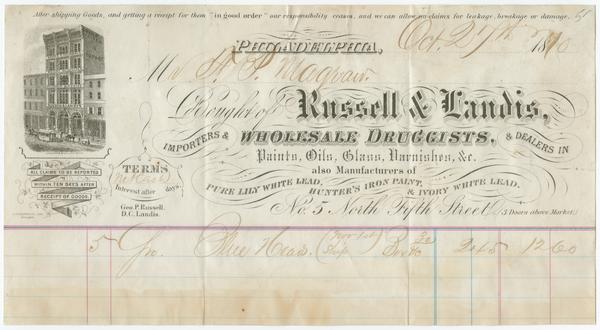 After shipping Goods, and getting a receipt for them "in good order" our responsibility ceases, and we can allow no claims for leakage, breakage or damage.
51
PHILADELPHIA, Oct. 27th 1870
M
Bought of Russell & Landis,
IMPORTERS & WHOLESALE DRUGGISTS, & DEALERS IN
Paints, Oils, Glass, Varnishes, &c.
also Manufacturers of
PURE LILY WHITE LEAD, HUNTER'S IRON PAINT, & IVORY WHITE LEAD.
No. 5 North Fifth Street (3 Doors above Market)
ALL CLAIMS TO BE REPORTED
WITHIN TEN DAYS AFTER
RECEIPT OF GOODS.
TERMS
Interest after days.
Geo. P. Russell.
D. C. Landis.
5 Gro. 12 60